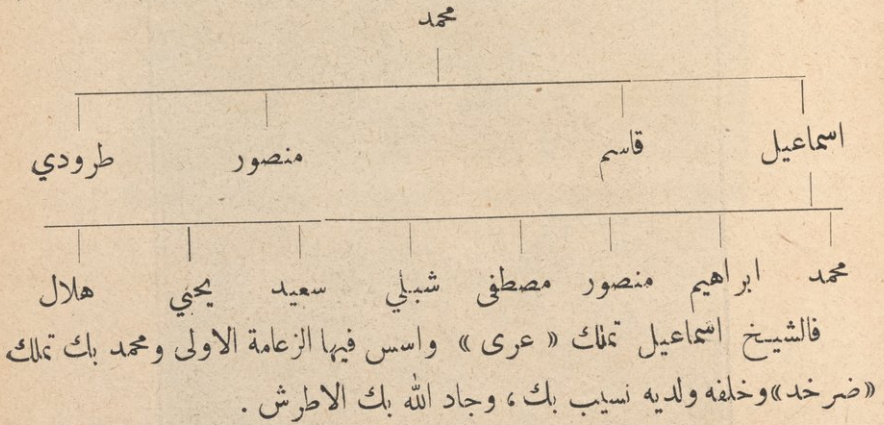 محمد
اسماعيل قاسم منصور طرودي
محمد ابراهيم منصور مصطفى شبلي سعيد يحيي هلال
فالشيخ اسماعيل تملك « عرى » واسس فيها الزعامة الاولى ومحمد بك تملك
«ضرخد» وخلفه ولديه نسيب بك ، وجاد الله بك الاطرش .